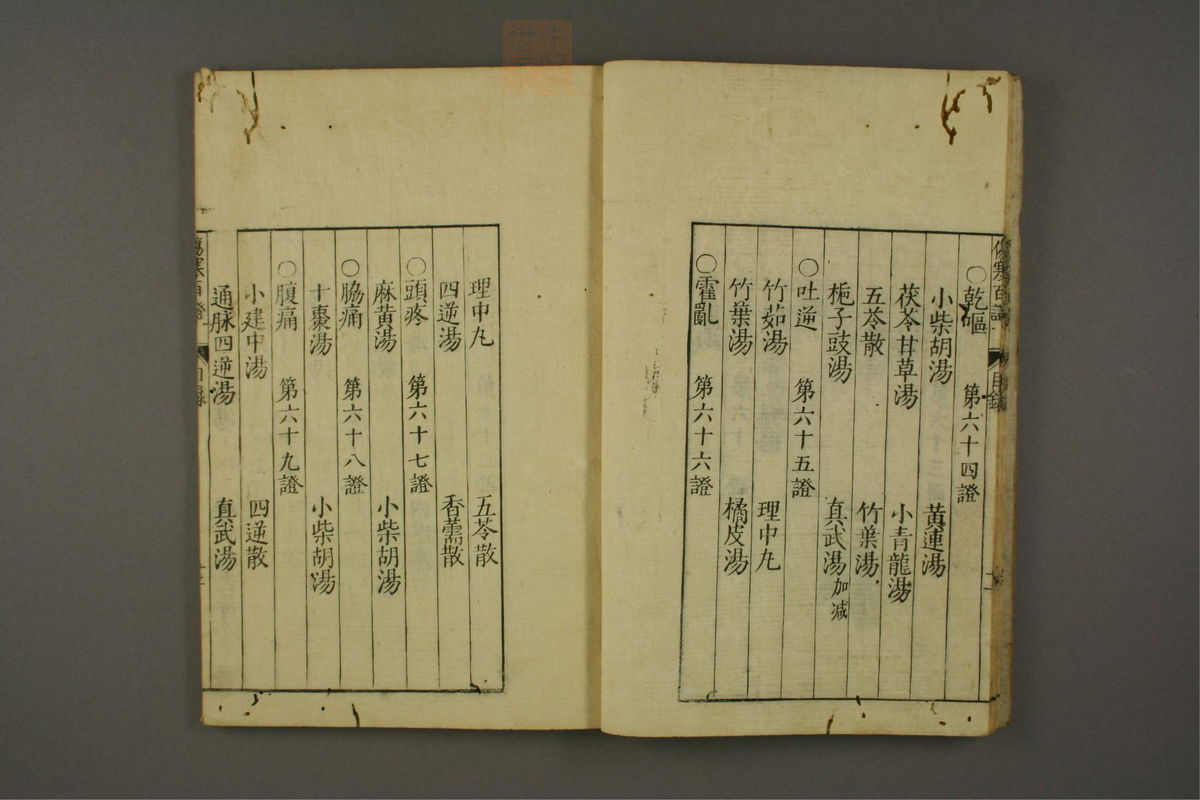 〇乾嘔　第六十四證
小柴胡湯　黃連湯
茯苓甘草湯　小青龍湯
五苓散　竹葉湯
梔子豉湯　真武湯加减
〇吐逆　第六十五證
竹茹湯　理中丸
竹葉湯　橘皮湯
〇霍亂　第六十六證
理中丸　五苓散
四逆湯　香薷散
〇頭疼　第六十七證
麻黃湯　小柴胡湯
〇脇痛　第六十八證
十棗湯　小柴胡湯
〇腹痛　第六十九證
小建中湯　四逆散
通脉四逆湯　真武湯